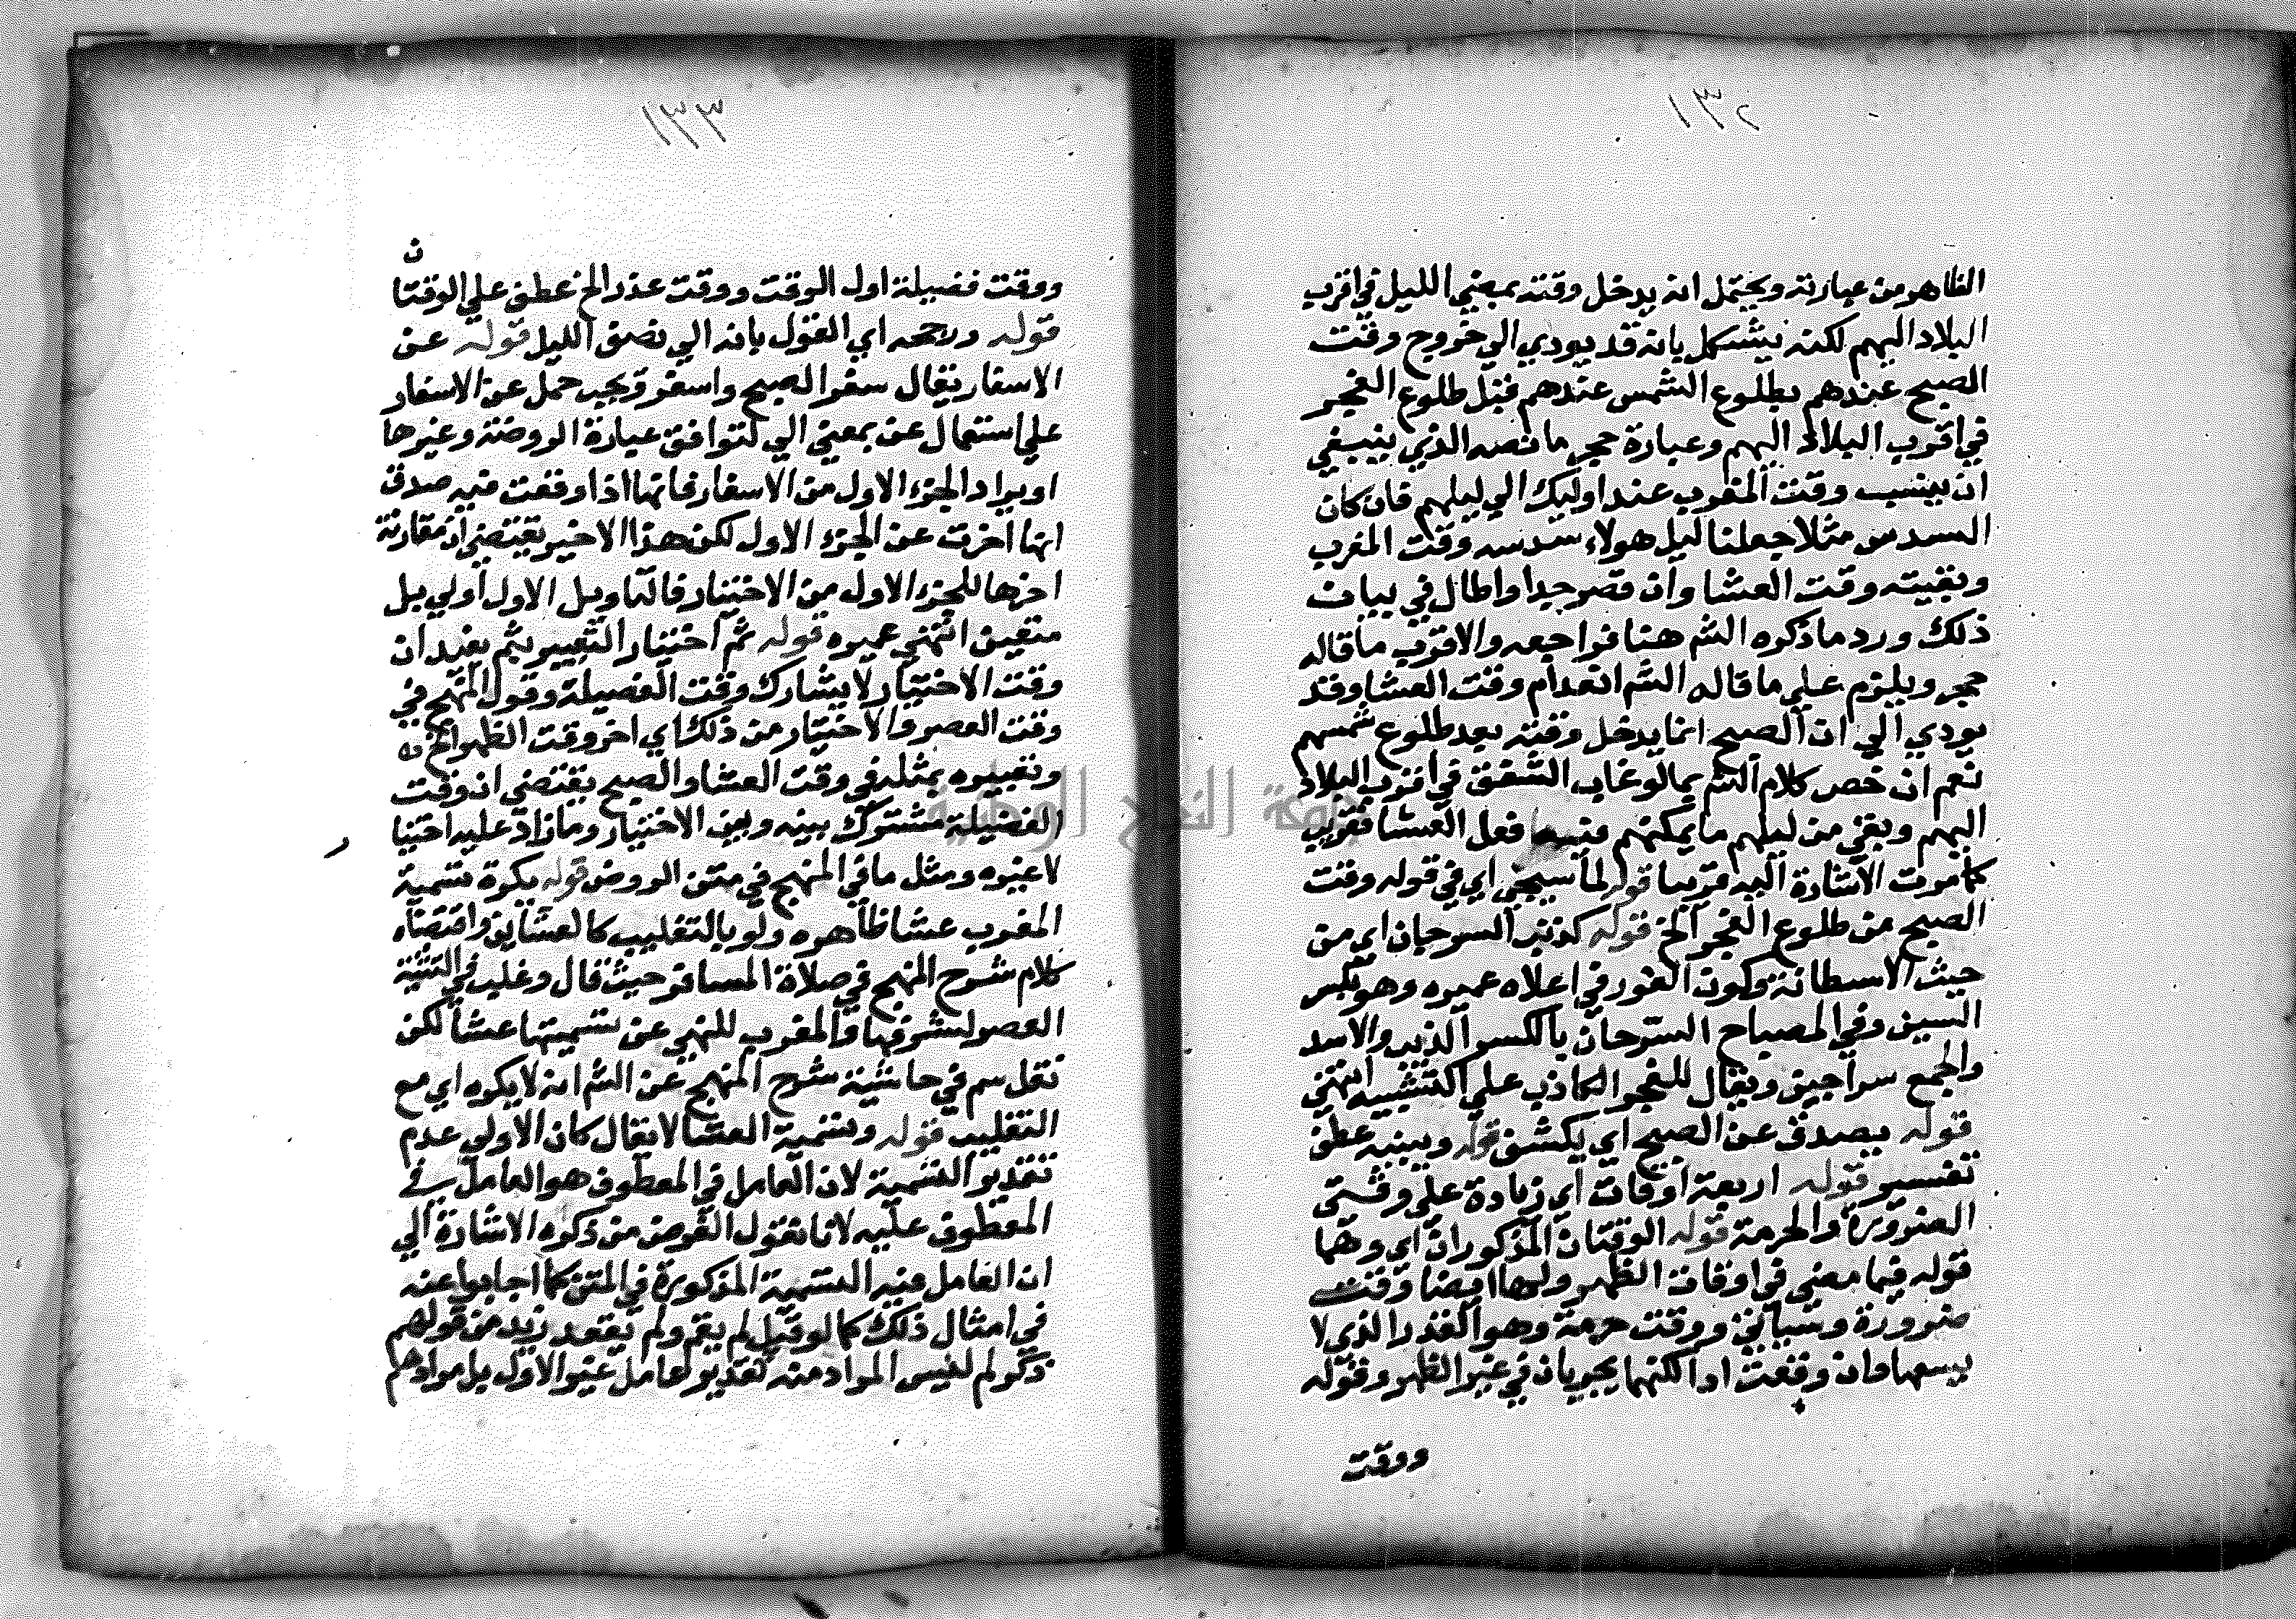 ١٣٢
الظاهر من عبارته ويحتمل انه يدخل وقته بمضي الليل في اقرب
البلاد اليهم لكنه يشكل بانه قد يودي الي خروج وقت
الصبح عندهم بطلوع الشمس عندهم قبل طلوع الفجر
في اقرب البلاد اليهم وعبارة حجر ما نصه الذي ينبغي
ان ينسب وقت المغرب عند اوليك الي ليلهم فان كان
السدس مثلا جعلنا ليل هولاء سدسه وقت المغرب
وبقيته وقت العشا وان قصر جدا واطال في بيان
ذلك ورد ما ذكره الشم هنا فراجعه والاقرب ما قاله
حجر ويلزم علي ما قاله الشم انعدام وقت العشا وقد
يودي الي ان الصبح انما يدخل وقته بعد طلوع شمسهم
نعم ان خص كلام الشم بما لو غاب الشفق في اقرب البلاد
اليهم وبقي من ليلهم ما يمكنهم فيه فعل العشا فقريب
كما مرت الاشارة اليه قريبا قوله لما سيجي اي في قوله وقت
الصبح من طلوع الفجر الخ قوله كذنب السرحان اي من
حيث الاستطالة وكون النور في اعلاه عميره وهو بكسر
السين وفي المصباح السرحان بالكسر الذيب والاسد
والجمع سراحين ويقال للفجر الكاذب علي التشبيه انتهي
قوله بصدق عن الصبح اي يكشف قوله ويبينه عطف
تفسير قوله اربعة اوقات اي زيادة علي وقتي
الضرورة والحرمة قوله الوقتان المذكوران اي وهما
قوله فيما مضي في اوقات الظهر ولها ايضا وقت
ضرورة وسياتي ووقت حرمة وهو القدر الذي لا
يسعها وان وقعت ادا لكنهما يجريان في غير الظهر وقوله
ووقت
١٣٣
ووقت فضيلة اول الوقت ووقت عذر الخ عطف علي الوقتان
قوله ورجحه اي القول بانه الي نصف الليل قوله عن
الاسفار يقال سفر الصبح واسفر ويجب حمل عن الاسفار
علي استعمال عن بمعني الي لتوافق عبارة الروضة وغيرها
او يراد الجزء الاول من الاسفار فانها اذا وقعت فيه صدق
انها اخرت عن الجزء الاول لكن هذا الاخير يقتضي ان مقارنة
اخرها للجزء الاول من الاختيار فالتاويل الاول اولي بل
متعين انتهي عميره قوله ثم اختيار التعبير بثم يفيد ان
وقت الاختيار لا يشارك وقت الفضيلة وقول المنهج في
وقت العصر والاختيار من ذلك اي اخر وقت الظهر الخ
وتعبيره بمثله في وقت العشا والصبح يقتضي ان وقت
الفضيلة مشترك بينه وبين الاختيار وما زاد عليه اختيا
ر
لا غيره ومثل ما في المنهج في متن الروض قوله يكره تسمية
المغرب عشا ظاهره ولو بالتغليب كالعشاين واقتضاه
كلام شرح المنهج في صلاة المسافر حيث قال وغلب في التثنية
العصر لشرفها والمغرب للنهي عن تسميتها عشا لكن
نقل سم في حاشية شرح المنهج عن الشم انه لا يكره اي مع
التغليب قوله وتسمية العشا لا يقال كان الاولي عدم
تقدير التسمية لان العامل في المعطوف هو العامل في
المعطوف عليه لانا نقول الغرض من ذكره الاشارة الي
ان العامل فيه التسمية المذكورة في المتن كما اجابوا عنه
في امثال ذلك كما لو قيل لم يقم ولم يقعد زيد من قولهم
ذكر لم ليس المراد منه تقدير لعامل غير الاول بل مرادهم